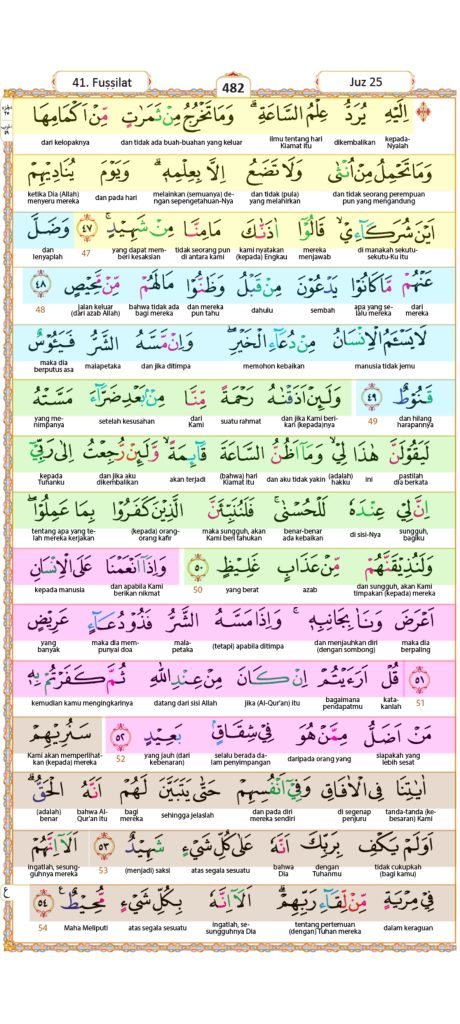 41. Fuṣṣilat 482 Juz 25
اِلَيْهِ يُرَدُّ عِلْمُ السَّاعَةِ ۗ وَمَا تَخْرُجُ مِنْ ثَمَرٰتٍ مِّنْ اَكْمَامِهَا
kepada-Nyalah dikembalikan ilmu tentang hari Kiamat itu dan tidak ada buah-buahan yang keluar dari kelopaknya
وَمَا تَحْمِلُ مِنْ اُنْثٰى وَلَا تَضَعُ اِلَّا بِعِلْمِهٖ ۗ وَيَوْمَ يُنَادِيْهِمْ
dan tidak seorang perempuan pun yang mengandung dan tidak (pula) yang melahirkan melainkan (semuanya) dengan sepengetahuan-Nya dan pada hari ketika Dia (Allah) menyeru mereka
اَيْنَ شُرَكَاۤءِيْۙ قَالُوْٓا اٰذَنّٰكَ مَا مِنَّا مِنْ شَهِيْدٍ ۚ ٤٧ وَضَلَّ
di manakah sekutu-sekutu-Ku itu mereka menjawab kami nyatakan (kepada) Engkau tidak seorang pun di antara kami yang dapat memberi kesaksian 47 dan lenyaplah
عَنْهُمْ مَّا كَانُوْا يَدْعُوْنَ مِنْ قَبْلُ وَظَنُّوْا مَا لَهُمْ مِّنْ مَّحِيْصٍ ٤٨
dari mereka apa yang selalu mereka sembah dahulu dan mereka pun tahu bahwa tidak ada bagi mereka jalan keluar (dari azab Allah) 48
لَا يَسْـَٔمُ الْاِنْسَانُ مِنْ دُعَاۤءِ الْخَيْرِۖ وَاِنْ مَّسَّهُ الشَّرُّ فَيَـُٔوْسٌ
manusia tidak jemu memohon kebaikan dan jika ditimpa malapetaka maka dia berputus asa
قَنُوْطٌ ٤٩ وَلَىِٕنْ اَذَقْنٰهُ رَحْمَةً مِّنَّا مِنْۢ بَعْدِ ضَرَّاۤءَ مَسَّتْهُ
dan hilang harapannya 49 dan jika Kami berikan (kepada)nya suatu rahmat dari Kami setelah kesusahan yang menimpanya
لَيَقُوْلَنَّ هٰذَا لِيْۙ وَمَآ اَظُنُّ السَّاعَةَ قَاۤىِٕمَةً ۙ وَّلَىِٕنْ رُّجِعْتُ اِلٰى رَبِّيْٓ
pastilah dia berkata ini (adalah) hakku dan aku tidak yakin (bahwa) hari Kiamat itu akan terjadi dan jika aku dikembalikan kepada Tuhanku
اِنَّ لِيْ عِنْدَهٗ لَلْحُسْنٰىۚ فَلَنُنَبِّئَنَّ الَّذِيْنَ كَفَرُوْا بِمَا عَمِلُوْاۖ
sungguh, bagiku di sisi-Nya benar-benar ada kebaikan maka sungguh, akan Kami beri tahukan (kepada) orang-orang kafir tentang apa yang telah mereka kerjakan
وَلَنُذِيْقَنَّهُمْ مِّنْ عَذَابٍ غَلِيْظٍ ٥٠ وَاِذَآ اَنْعَمْنَا عَلَى الْاِنْسَانِ
dan sungguh, akan Kami timpakan (kepada) mereka azab yang berat 50 dan apabila Kami berikan nikmat kepada manusia
اَعْرَضَ وَنَاٰ بِجَانِبِهٖۚ وَاِذَا مَسَّهُ الشَّرُّ فَذُوْ دُعَاۤءٍ عَرِيْضٍ
maka dia berpaling dan menjauhkan diri (dengan sombong) (tetapi) apabila ditimpa malapetaka maka dia mempunyai doa yang banyak
٥١ قُلْ اَرَءَيْتُمْ اِنْ كَانَ مِنْ عِنْدِ اللّٰهِ ثُمَّ كَفَرْتُمْ بِهٖ
51 katakanlah bagaimana pendapatmu jika (Al-Qur'an) itu datang dari sisi Allah kemudian kamu mengingkarinya
مَنْ اَضَلُّ مِمَّنْ هُوَ فِيْ شِقَاقٍۢ بَعِيْدٍ ٥٢ سَنُرِيْهِمْ
siapakah yang lebih sesat daripada orang yang selalu berada dalam penyimpangan yang jauh (dari kebenaran) 52 Kami akan memperlihatkan (kepada) mereka
اٰيٰتِنَا فِى الْاٰفَاقِ وَفِيْٓ اَنْفُسِهِمْ حَتّٰى يَتَبَيَّنَ لَهُمْ اَنَّهُ الْحَقُّۗ
tanda-tanda (kebesaran) Kami di segenap penjuru dan pada diri mereka sendiri sehingga jelaslah bagi mereka bahwa Al-Qur'an itu (adalah) benar
اَوَلَمْ يَكْفِ بِرَبِّكَ اَنَّهٗ عَلٰى كُلِّ شَيْءٍ شَهِيْدٌ ٥٣ اَلَآ اِنَّهُمْ
tidak cukupkah (bagi kamu) dengan Tuhanmu bahwa Dia atas segala sesuatu (menjadi) saksi 53 ingatlah, sesungguhnya mereka
فِيْ مِرْيَةٍ مِّنْ لِّقَاۤءِ رَبِّهِمْ ۗ اَلَآ اِنَّهٗ بِكُلِّ شَيْءٍ مُّحِيْطٌ ٥٤ ع
dalam keraguan tentang pertemuan (dengan) Tuhan mereka ingatlah, sesungguhnya Dia atas segala sesuatu Maha Meliputi 54